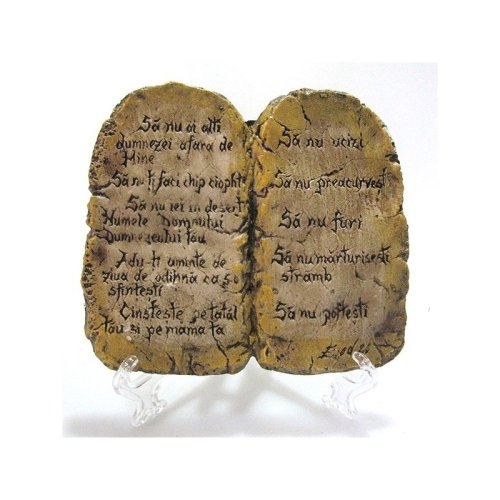 Să nu ai alti
dumnezei afara de
Mine
Să nu ti faci chip cioplit
Să nu iei in desert
Numele Domnului
Dumnezeului tau
Adu-ti aminte de
ziua de odihnă ca s o
sfintesti
Cinsteste pe tatăl
tău si pe mama ta
Să nu ucizi
Să nu preacurvești
Să nu furi
Să nu mărturisesti
stramb
Să nu poftesti